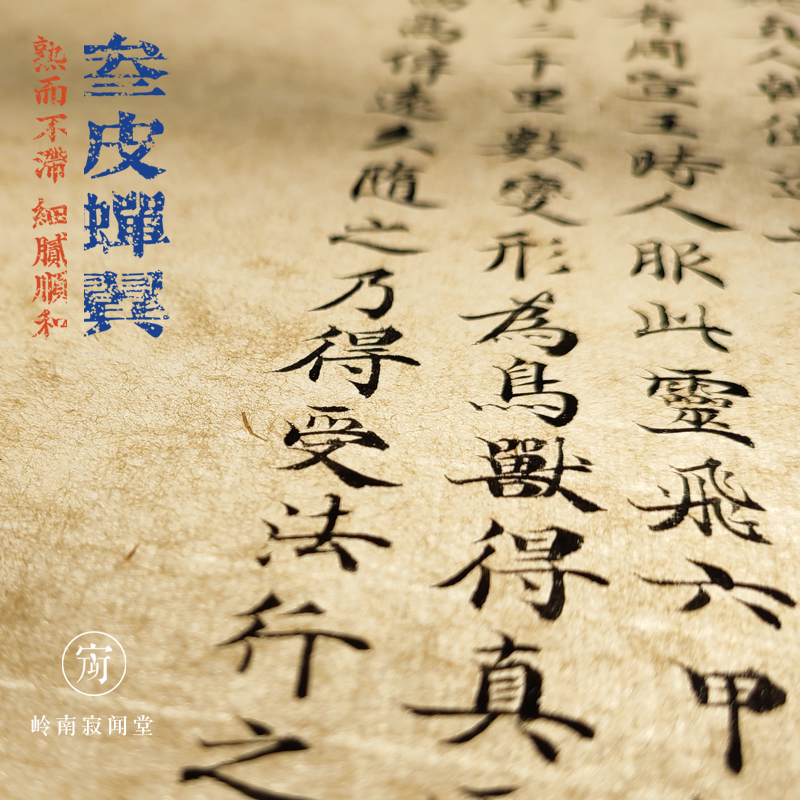 周宣王時人服此靈飛六甲
千里數變形為鳥獸得真
偉遠久隨之乃得受法行之
叁皮蟬翼
熟而不滯 細膩順和
岭南寂闻堂